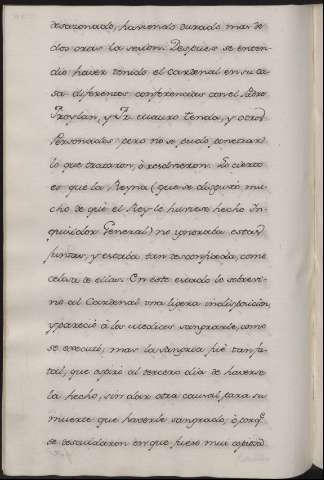 desazonado, haviendo durado mas de
dos oras la sesion. Despues se enten-
dio haver tenido el Cardenal en su ca-
sa diferentes conferencias con el Padre
Froylan, y Fr. Mauro tenda, y otros
Personados pero no se pudo penetrar
lo que trataron, ò resolvieron. Lo cierto
es que la Reyna (que se disgustò mu-
cho de què el Rey le huviese hecho In-
quisidor General) no ignoraba estas
juntas, y estaba tan desconfiada, como
celosa de ellas. En este estado le sobrevi-
no al Cardenal una ligera indisposicion,
y pareciò à los Medicos sangrarle, como
se executò, mas la sangria fuè tan fa-
tal, que espirò al tercero dia de haverse
la hecho, sin dar otra causal, para su
muerte que haverle sangrado; ò porq.e
se descuidaron en que fuese mui copiosa